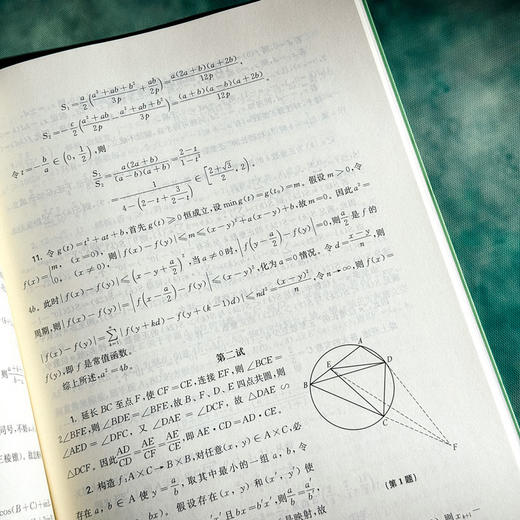 S₁=a/2(a²+ab+b²/3p+ab/2p)=a(2a+b)(a+2b)/12p,
S₂=-c/2(a²+ab/2p-a²+ab+b²/3p)=(a+b)(a-b)(a+2b)/12p
令t=-b/a∈(0,1/2),则
S₁/S₂=a(2a+b)/(a-b)(a+b)=2-t/1-t²
=1/4-(2-t+3/2-t)∈[2+√3/2,2).
11. 令g(t)=t²+at+b,首先g(t)≥0恒成立,设min g(t)=g(t₀)=m。假设m>0,令
f(x)={m, (x=0), 0, (x≠0),则|f(x)-f(y)|≤m≤(x-y)²+a(x-y)+b,故m=0。因此a²=
4b。此时|f(x)-f(y)|≤(x-y+a/2)²,当a≠0时,|f(y-a/2)-f(y)|=0,则a/2是f的
周期,则|f(x)-f(y)|=|f(x-a/2)-f(y)|≤(x-y)²,化为a=0情况。令d=x-y/n,
|f(x)-f(y)|=∑|f(y+kd)-f(y+(k-1)d)|≤nd²=(x-y)²/n,令n→∞,则f(x)=
f(y),即f是常值函数。
综上所述,a²=4b。
第二试
1. 延长BC至点F,使CF=CE,连接EF,则∠BCE=
2∠BFE,则∠BDE=∠BFE,故B、F、D、E四点共圆,则
∠AED=∠DFC,又∠DAE=∠DCF,故△DAE∽
△DCF,因此AD/CD=AE/CF=AE/CE,即AE·CD=AD·CE。
2. 构造f:A×C→B×B,对任意(x,y)∈A×C,必
存在a,b∈A使y=a/b,取其中最小的一组a,b,令
bx)。假设存在(x,y)和(x′,y′)使
x′且bx=b′x′,则a/b=a′/b′,
是映射,故
A
B
C
D
E
F
(第1题)